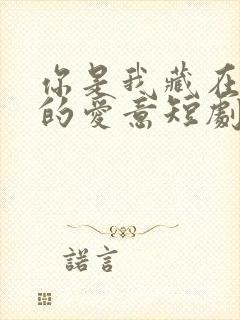 你是我藏在
的愛意短劇
諾言